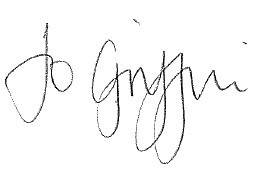 Jo Griffin